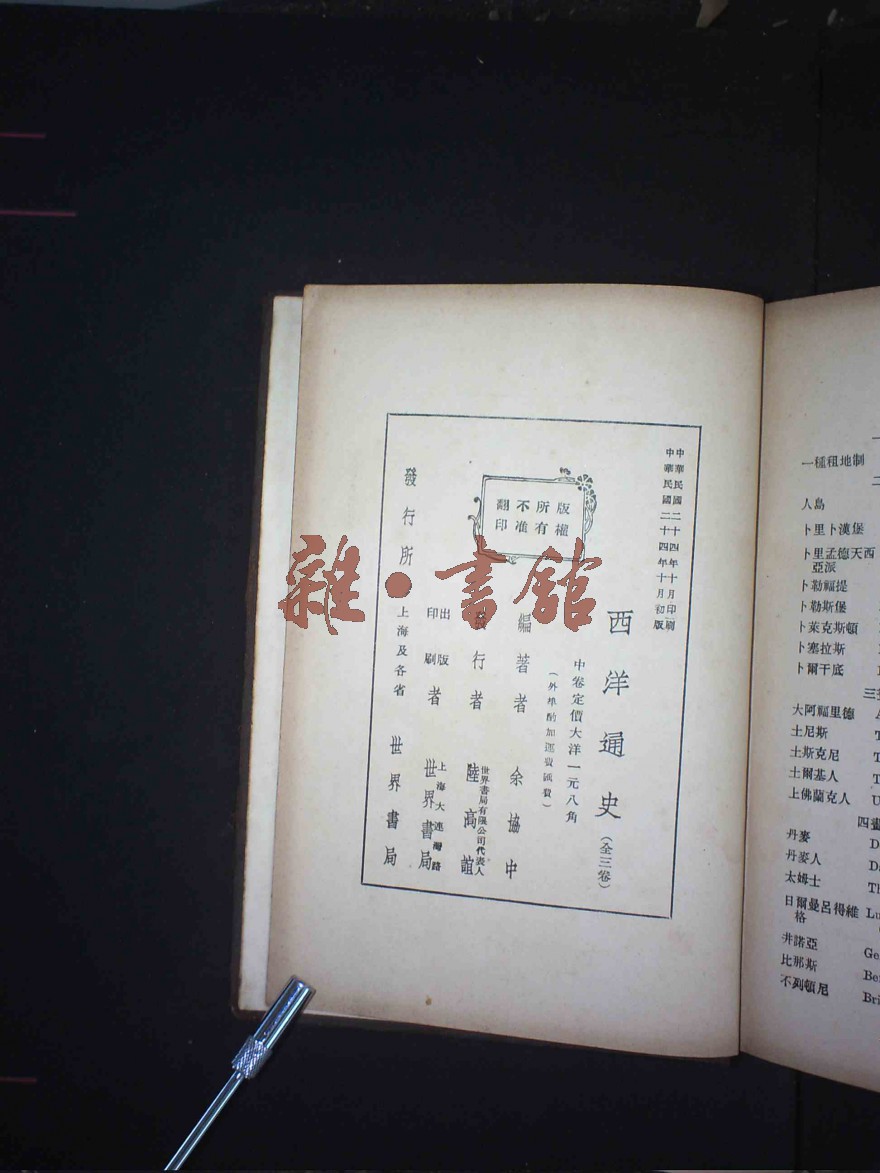 中華民國二十四年十月印刷
中華民國二十四年十月初版
西洋通史(全三卷)
中卷定價大洋一元八角
(外埠酌加運費匯費)
版權所有
不准翻印
編著者 余協中
發行者 世界書局有限公司代表人 陸高誼
出版印刷者 上海大連灣路 世界書局
發行所 上海及各省 世界書局
雜·書館
一種租地制
人島
卜里卜漢堡
卜里孟德天西
亞派
卜勒福提
卜勒斯堡
卜萊克斯頓
卜塞拉斯
卜爾干底
大阿福里德
土尼斯 T
土斯克尼 T
土爾基人 T
上佛蘭克人 U
四畫
丹麥 D
丹麥人 D
太姆士 Th
日爾曼呂得維 Lu
格
井諾亞 Ge
比那斯 Be
不列頓尼 Bri